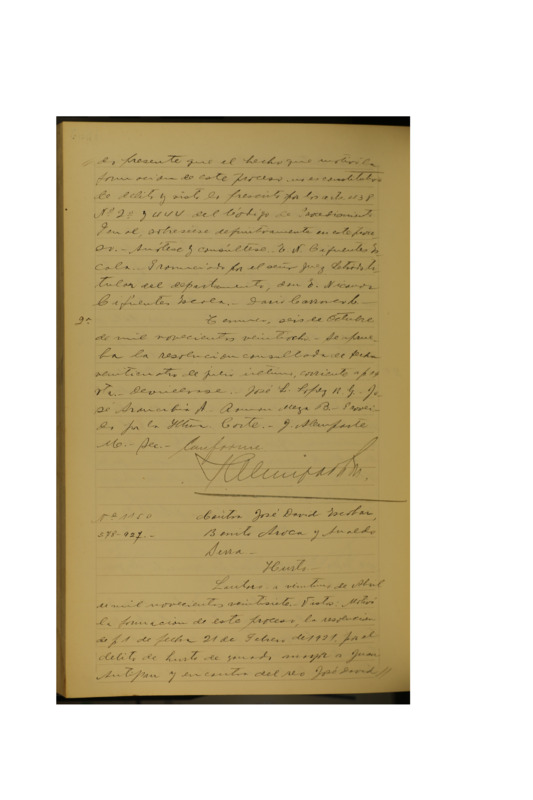 es presente que el hecho que motivó la
formacion de este proceso no es constitutivo
de delito y visto lo prescrito por los arts. 438
Nº 2º y 444 del Código de Procedimiento
Penal, sobreseese definitivamente en este proce
so.- Anótese y consúltese. E. N. Cifuentes Es
cala.- Pronunciada por el señor Juez Letrado ti
tular del departamento, don E. Nicanor
Cifuentes Escala.- Dario
2ª Temuco, seis de Octubre
de mil novecientos veintiocho.- Se aprue
ba la resolucion consultada de fecha
veinticuatro de julio último, corriente a fs
vta.- Devuélvase.- José L. Lopez R. G.- Jo
se Arancibia A. Roman Mega B.- Provei
do por la Iltma. Corte.- J. Alemparte
M.- Sec.- Conforme
Nº 1150 Contra José David Escobar,
278-927.- Benito Aroca y
Serra.-
Hurto.-
Lautaro, a veintiuno de Abril
de mil novecientos veintisiete. Vistos: Motivó
la formacion de este proceso, la resolucion
de fs 1 de fecha 21 de Febrero de 1921, por el
delito de hurto de ganado mayor a Juan
y en contra del reo José David //